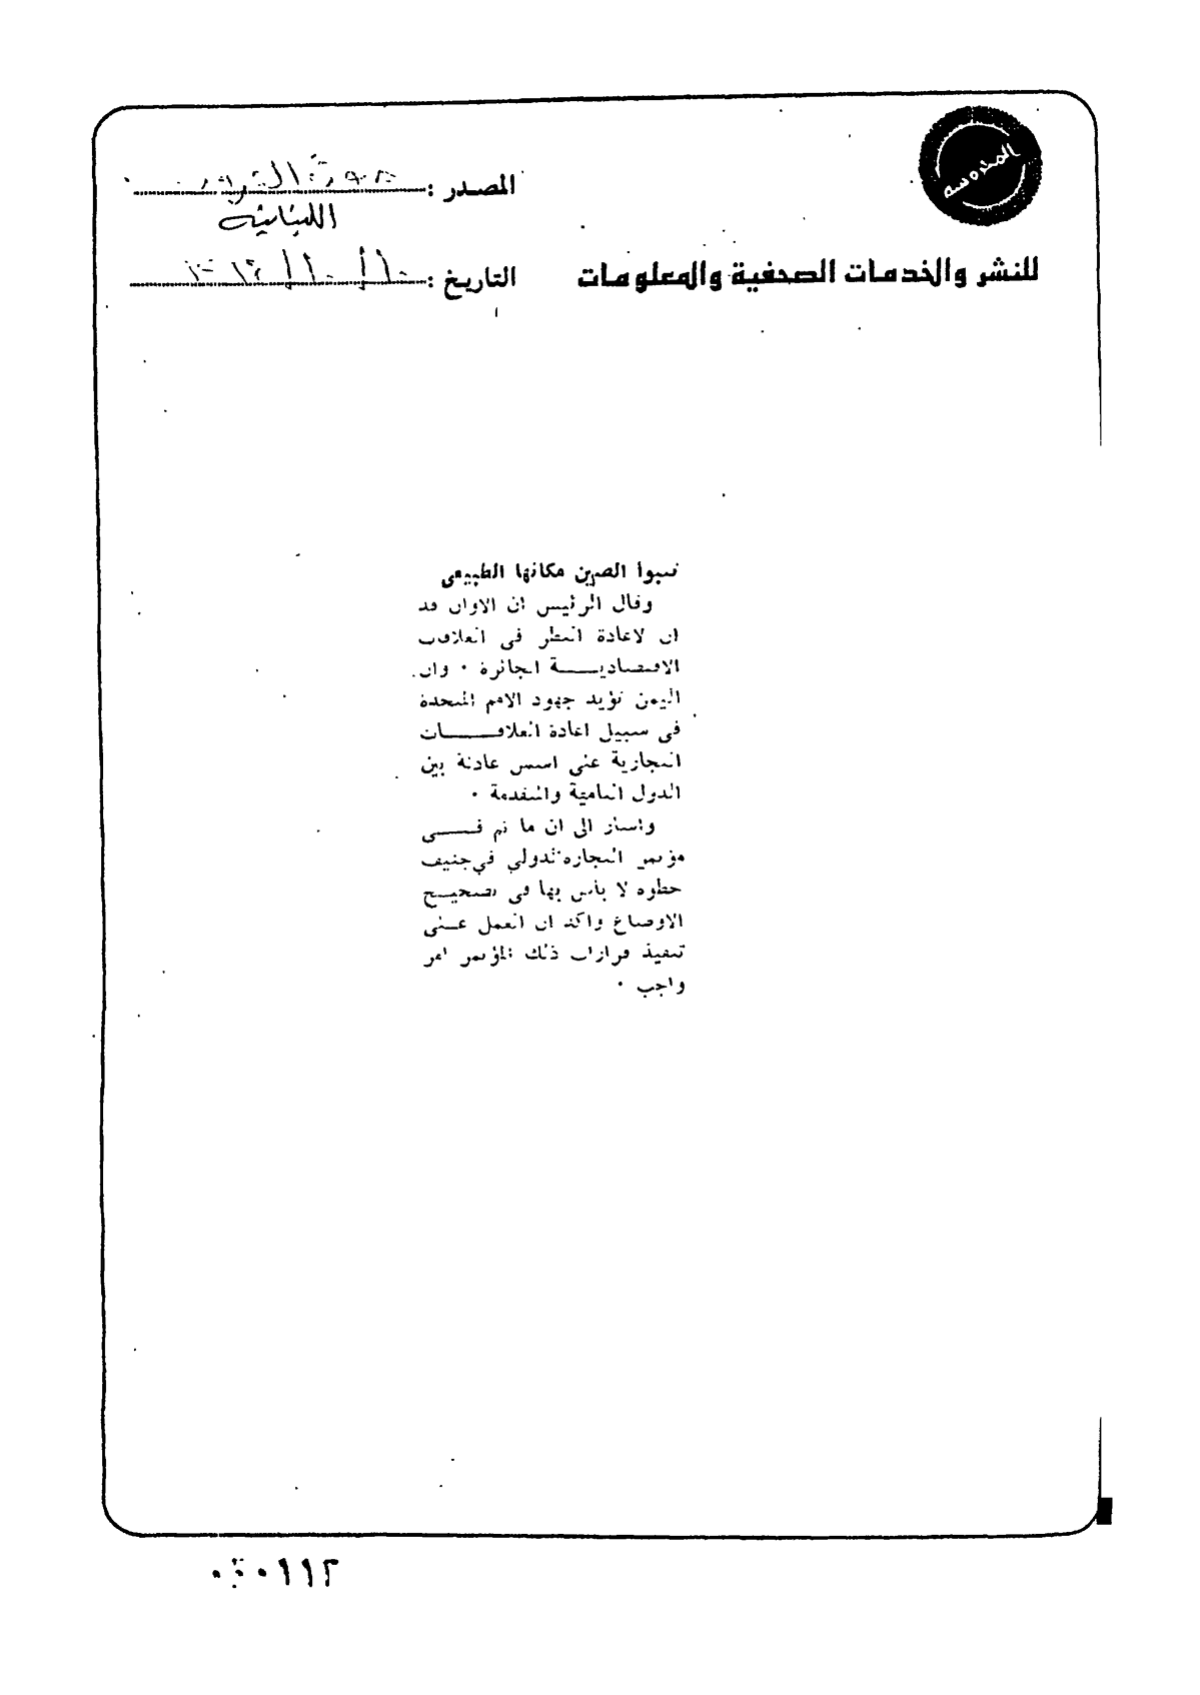 المحروسة
المصدر : صوت العروبة
اللبنانية
للنشر والخدمات الصحفية والمعلومات
التاريخ :
تتبوأ الصين مكانها الطبيعي
وقال الرئيس ان الاوان قد
آن لاعادة النظر في العلاقات
الاقتصاديــــة الجائرة ٠ وان
اليمن تؤيد جهود الامم المتحدة
في سبيل اعادة العلاقــــات
التجارية على اسس عادلة بين
الدول النامية والمتقدمة ٠
واشار الى ان ما تم فــــي
مؤتمر التجارة الدولي في جنيف
خطوة لا بأس بها في تصحيح
الاوضاع واكد ان العمل علـى
تنفيذ قرارات ذلك المؤتمر امر
واجب ٠